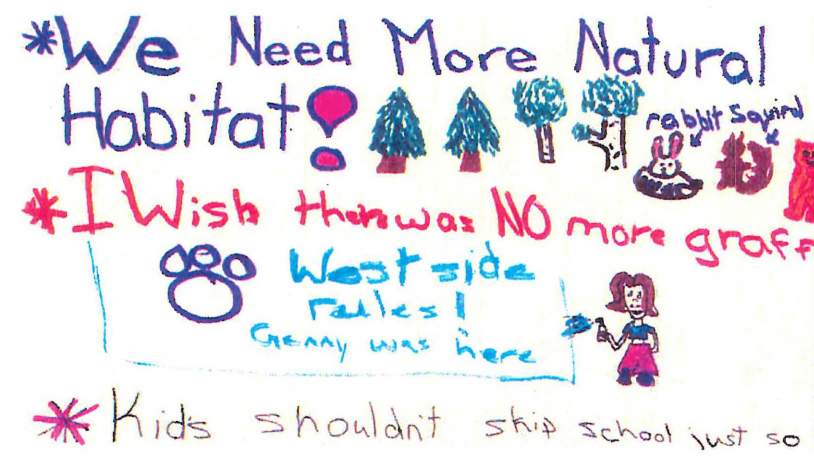 *We Need More Natural
Habitat!
rabbit Squirrl
*I Wish there was NO more graff
West side
rules!
Genny was here
*Kids shouldn't skip school just so